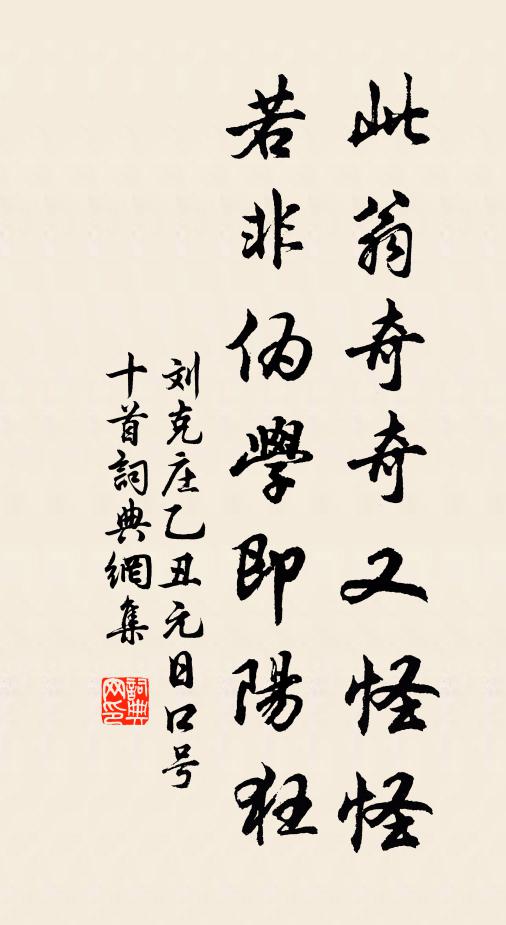 此翁奇奇又怪怪
若非伪學即陽狂
刘克庄乙丑元日口号
十首詞典網集
詞典
网印